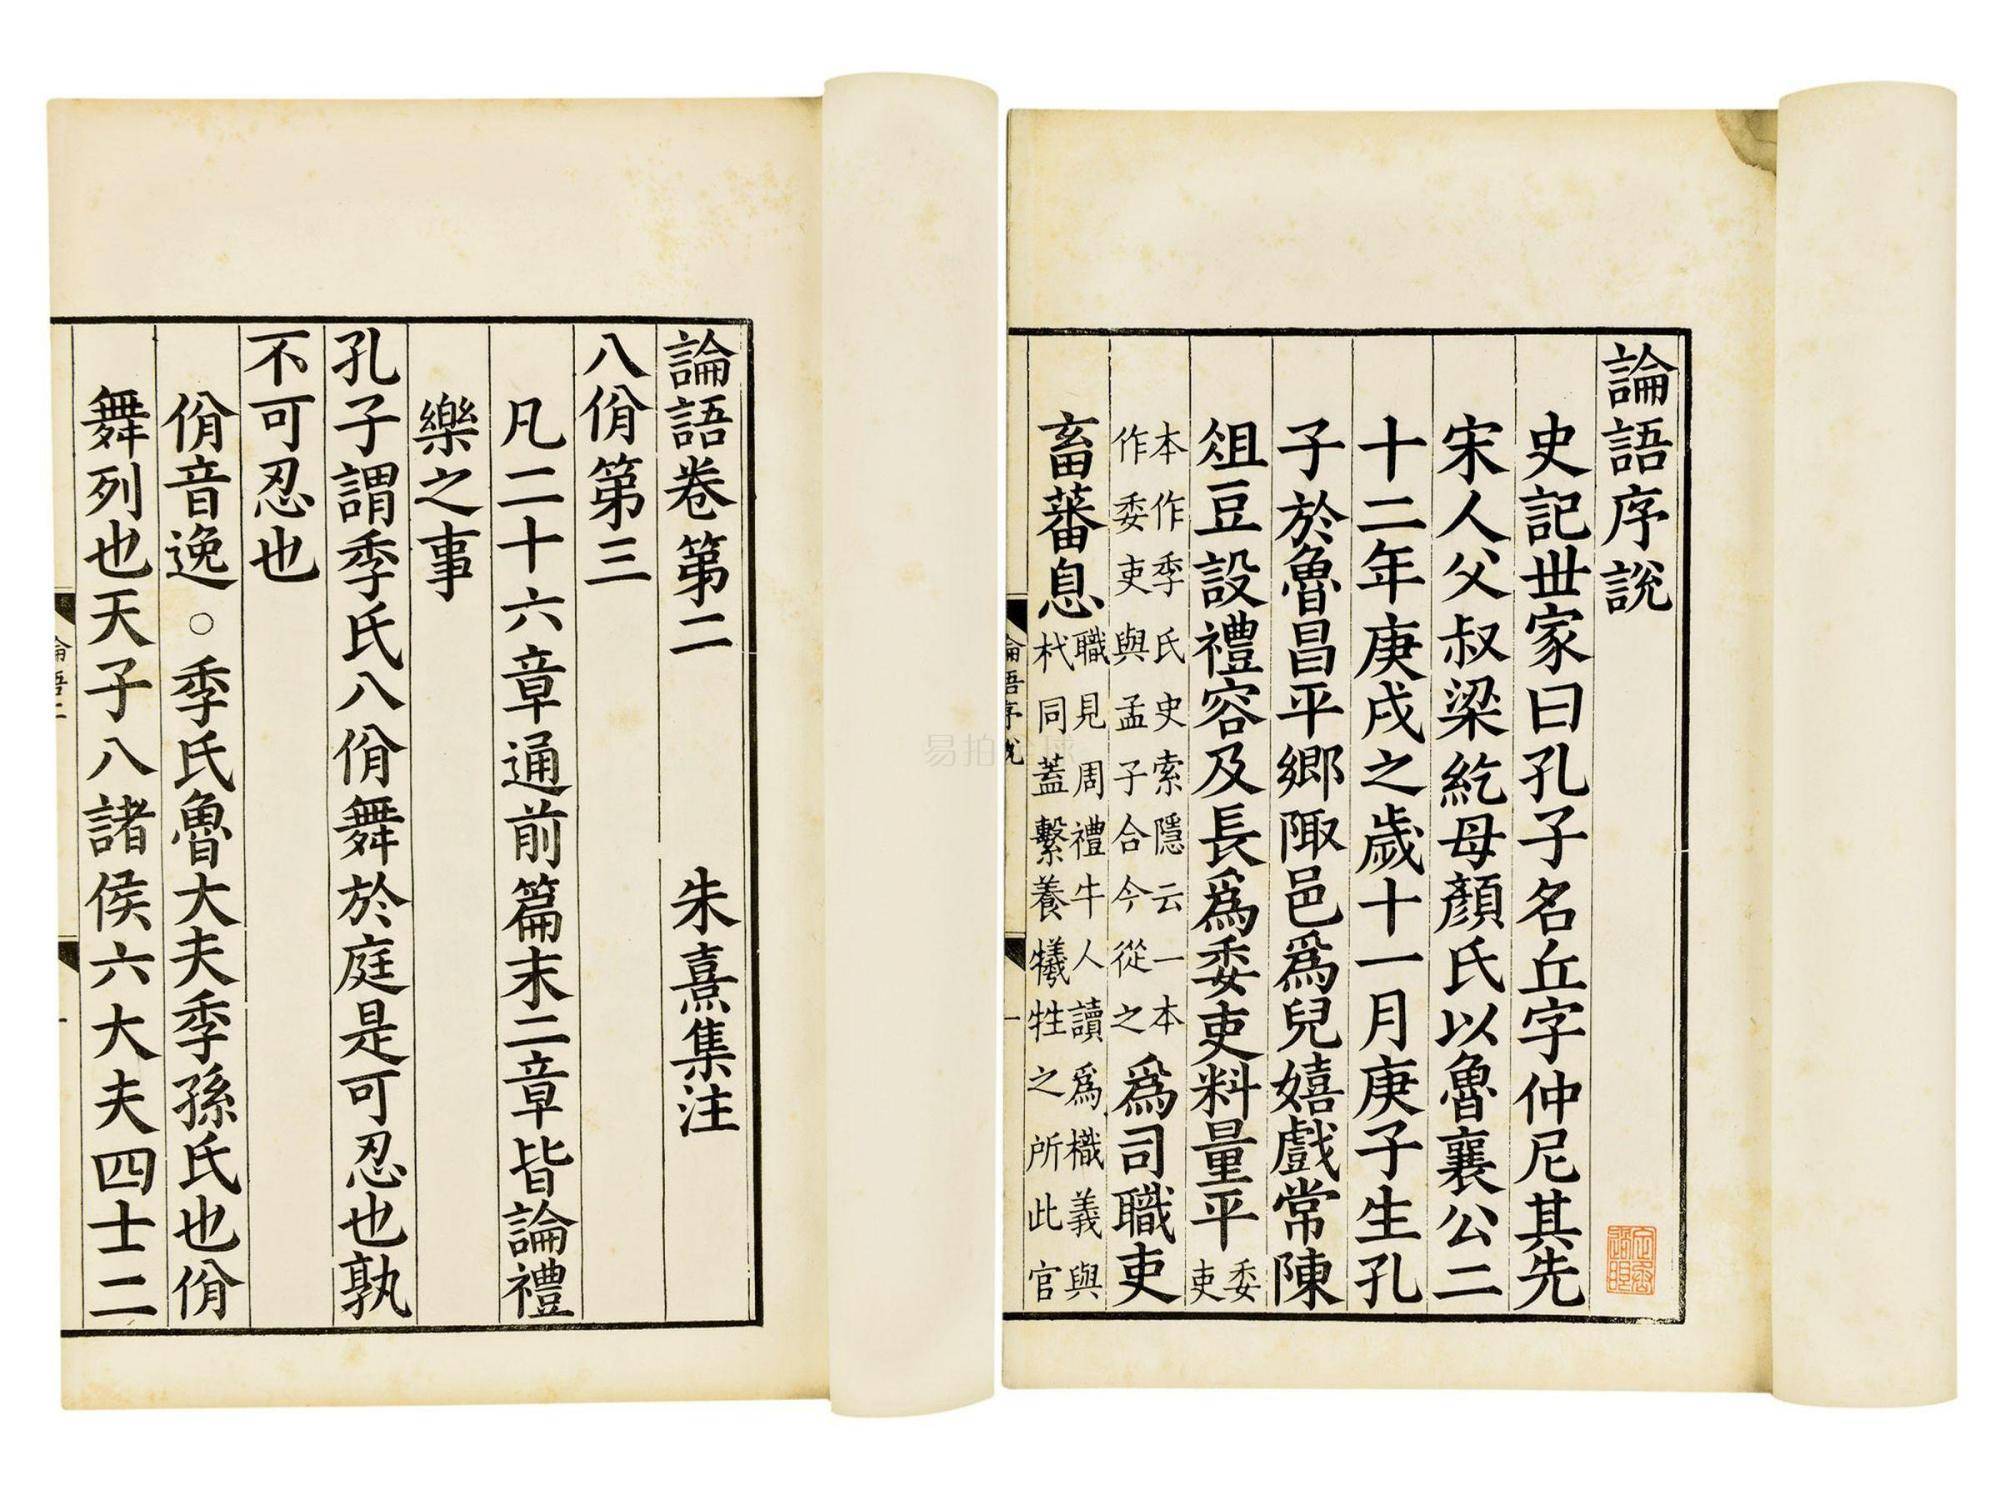 論語序說
史記世家曰孔子名丘字仲尼其先
宋人父叔梁紇母顏氏以魯襄公二
十二年庚戌之歲十一月庚子生孔
子於魯昌平鄉陬邑爲兒嬉戲常陳
俎豆設禮容及長爲委吏料量平委吏
本作季氏史索隱云一本
作委吏與孟子合今從之
爲司職吏
畜蕃息
職見周禮牛人讀爲樴義與
杙同蓋繫養犧牲之所此官
論語序說 一
論語卷第二 朱熹集注
八佾第三
凡二十六章通前篇末二章皆論禮
樂之事
孔子謂季氏八佾舞於庭是可忍也孰
不可忍也
佾音逸○季氏魯大夫季孫氏也佾
舞列也天子八諸侯六大夫四士二
論語二 一
易拍全球